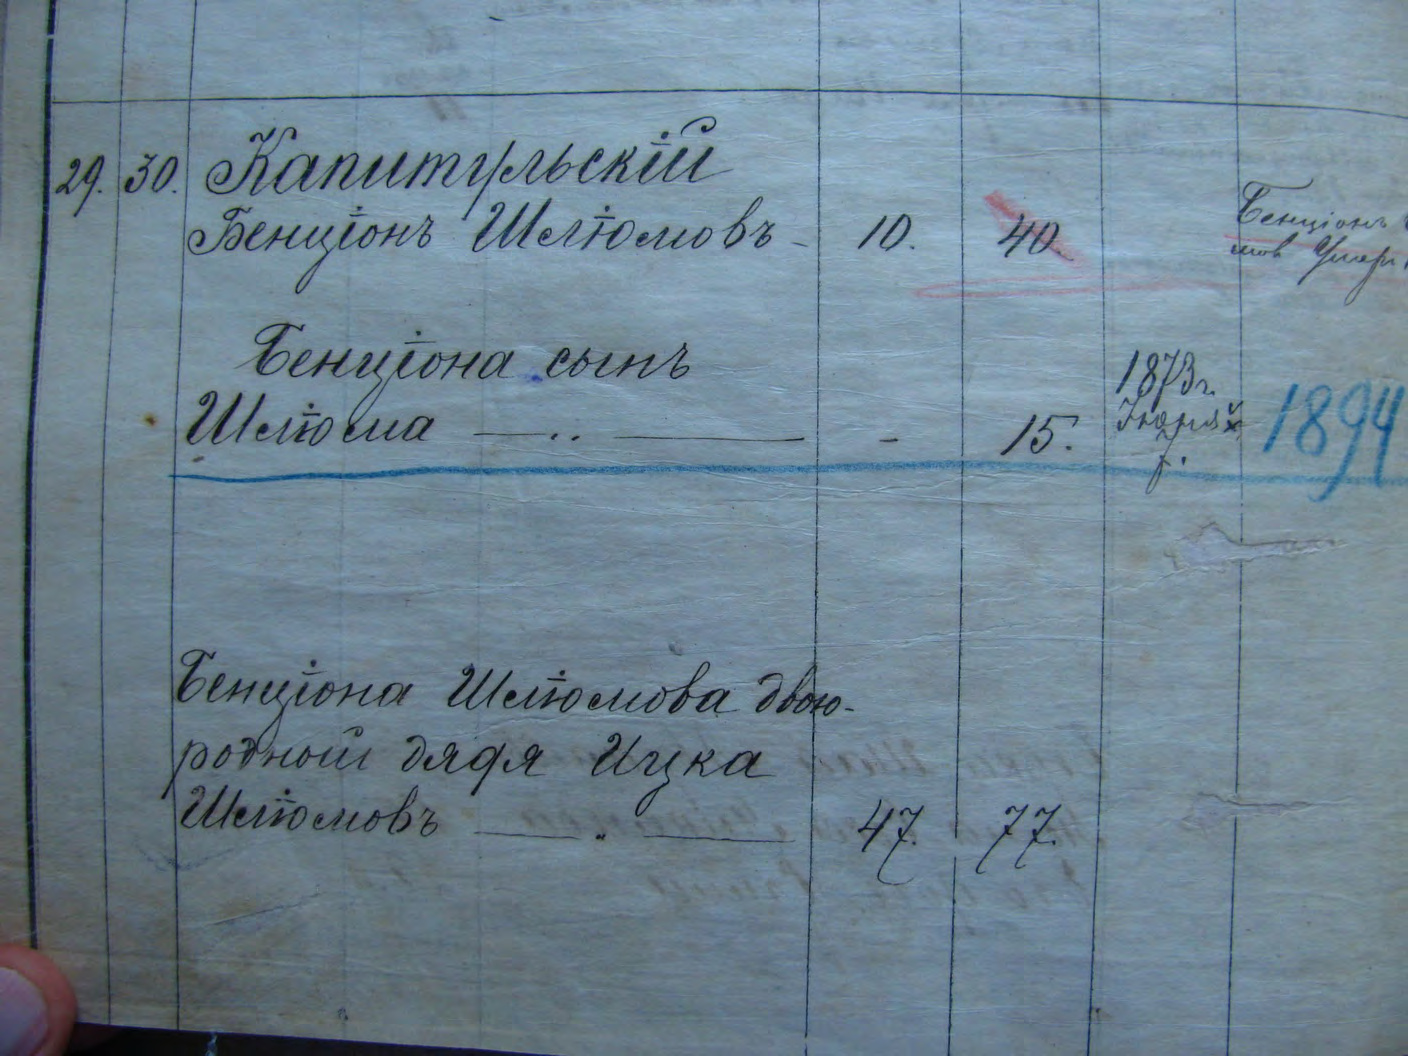 29. 30. Капитульскій
Бенціонъ Шлїомовъ - 10. 40. Бенціонъ
мов Умеръ
Бенціона сынъ
1873 г.
Шлїома — .. — - 15. 7. 1894
Бенціона Шлїомова двою-
родный дядя Ицка
Шлїомовъ — „ — 47. 77.